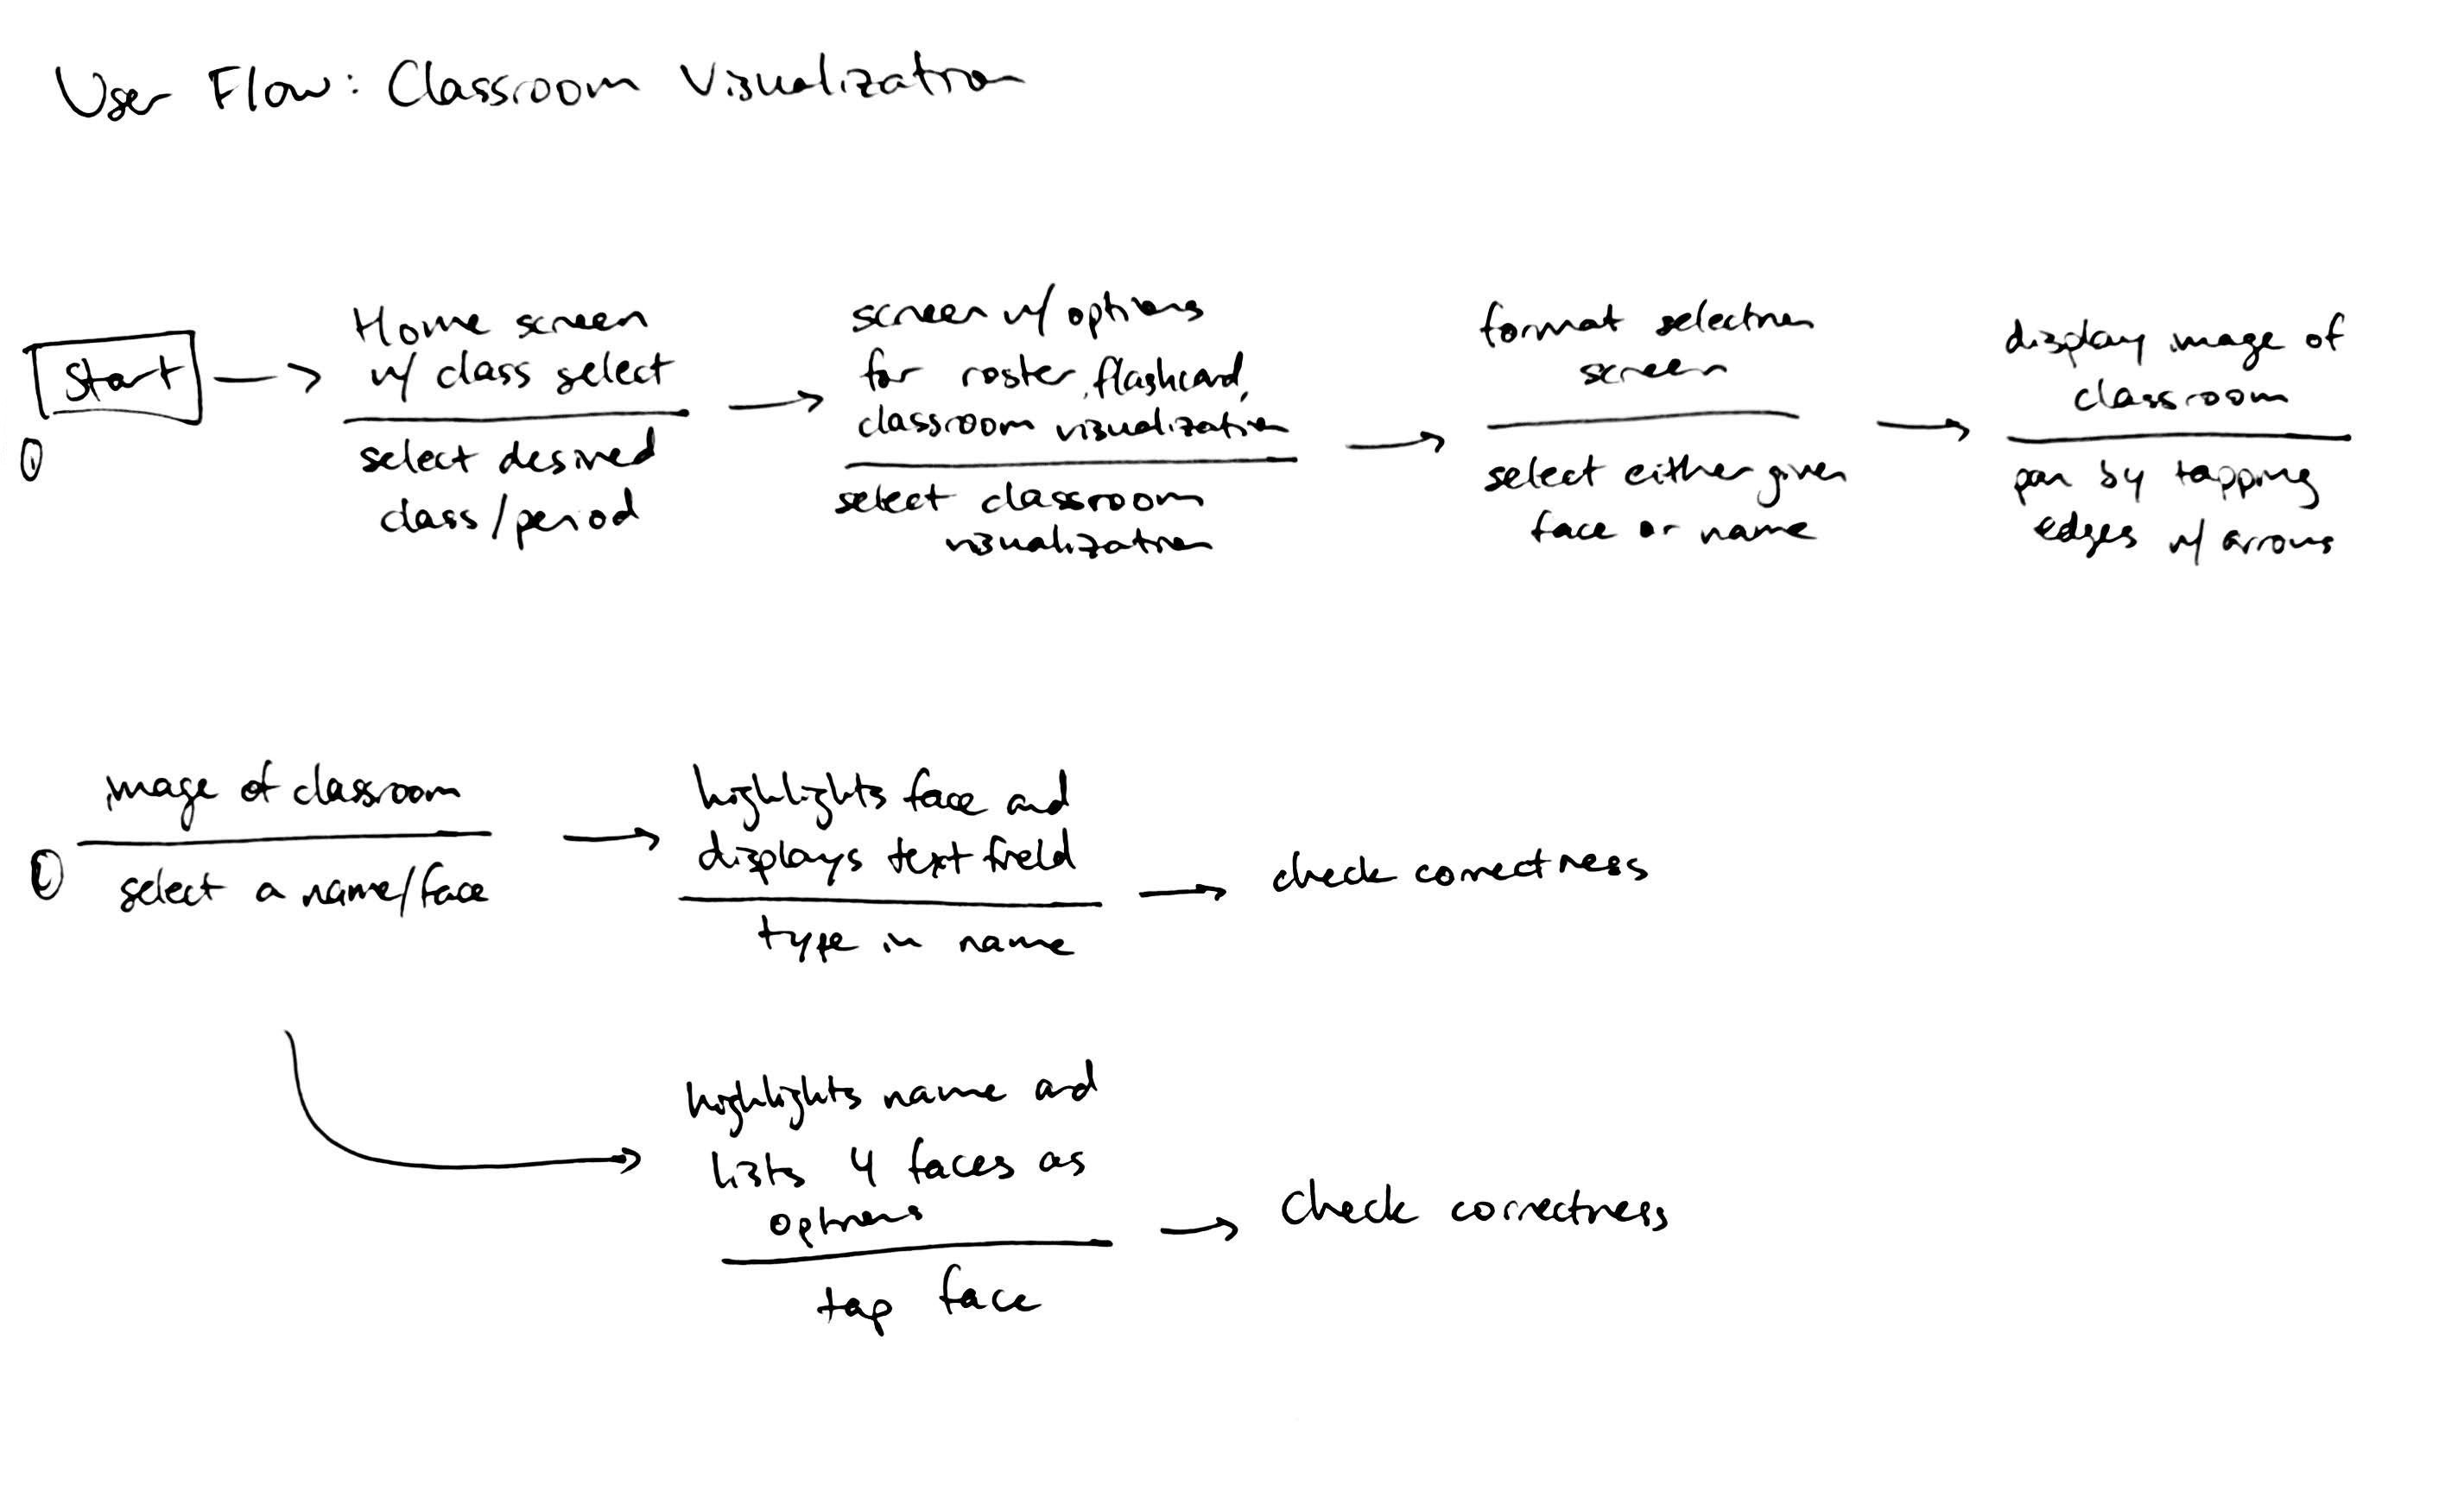 User Flow: Classroom Visualization
Start
①
Home screen
w/ class select
select desired
class/period
screen w/ options
for roster, flashcard,
classroom visualization
select classroom
visualization
format selection
screen
select either given
face or name
display image of
classroom
pan by tapping
edges w/ arrows
image of classroom
select a name/face
highlights face and
displays text field
type in name
check correctness
highlights name and
lists 4 faces as
options
tap face
Check correctness